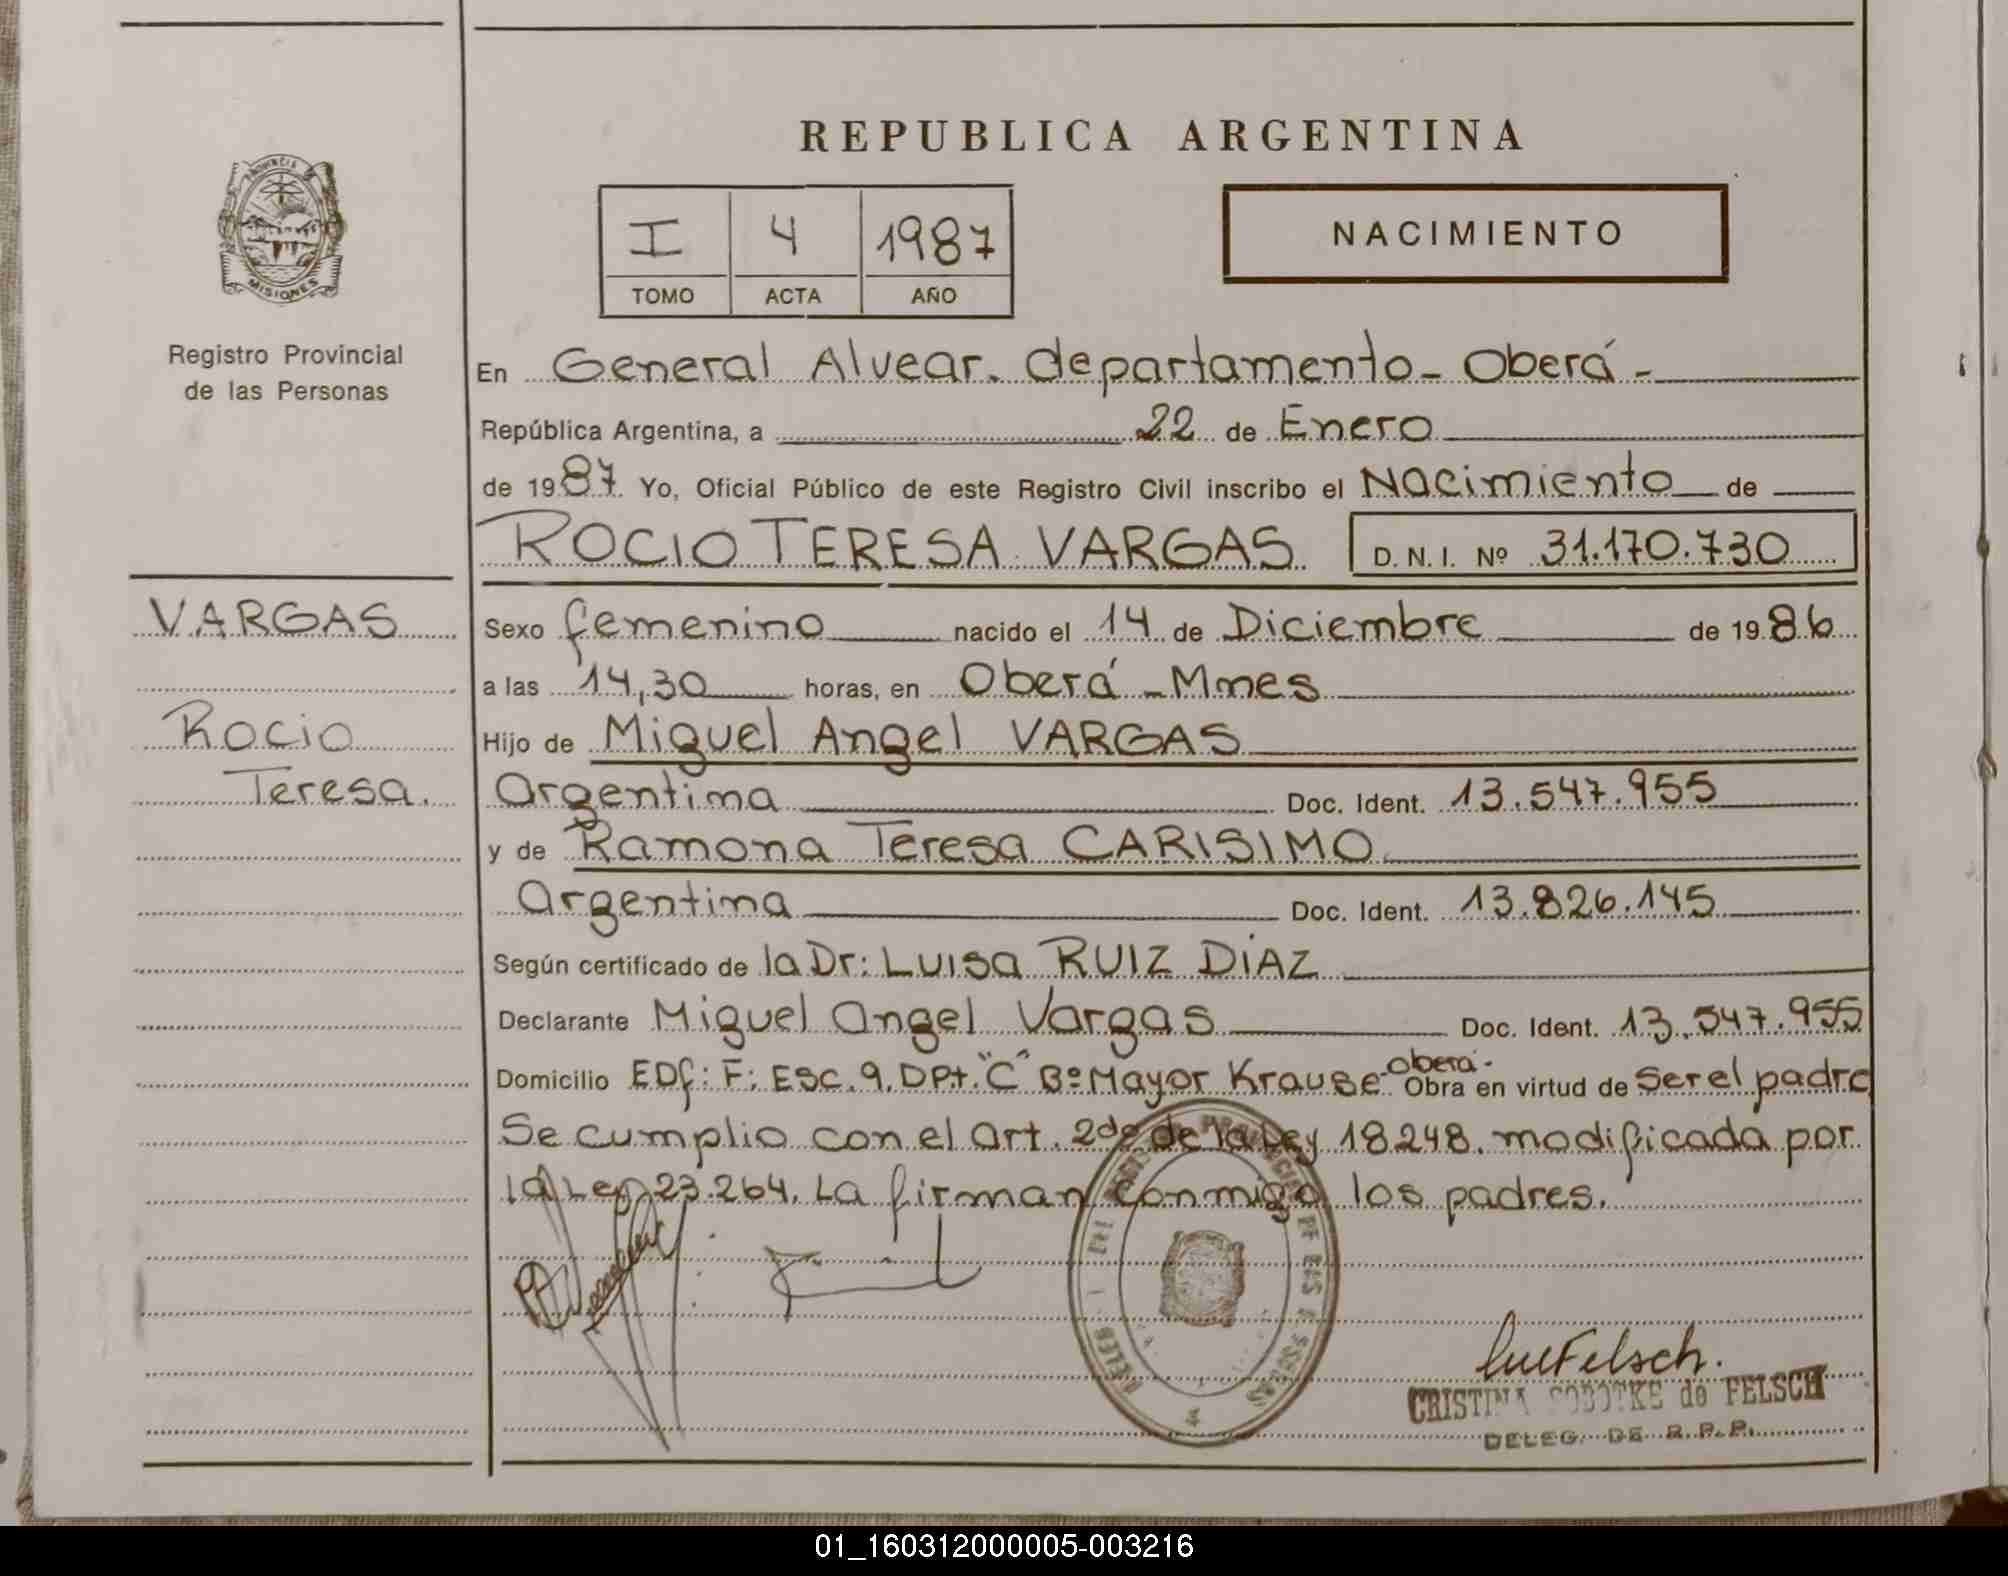 REPUBLICA ARGENTINA
PROVINCIA
MISIONES
Registro Provincial
de las Personas
I 4 1987
TOMO ACTA AÑO
NACIMIENTO
En General Alvear. departamento - Oberá -
República Argentina, a 22 de Enero
de 1987. Yo, Oficial Público de este Registro Civil inscribo el Nacimiento de
ROCIO TERESA VARGAS D.N.I. Nº 31.170.730
VARGAS
Rocio
Teresa.
Sexo femenino nacido el 14 de Diciembre de 1986
a las 14,30 horas, en Oberá - Mnes
Hijo de Miguel Angel VARGAS
Argentina Doc. Ident. 13.547.955
y de Ramona Teresa CARISIMO
Argentina Doc. Ident. 13.826.145
Según certificado de la Dr: LUISA RUIZ DIAZ
Declarante Miguel Angel Vargas Doc. Ident. 13.547.955
Domicilio EDf: F: ESC. 9. DPt. "C" Bº Mayor Krause - Oberá - Obra en virtud de Ser el padre
Se cumplio con el art. 2do de la Ley 18248. modificada por
la Ley 23.264. La firman conmigo los padres.
CRISTINA SOBOTKE de FELSCH
DELEG. DE R.P.P.
01_160312000005-003216